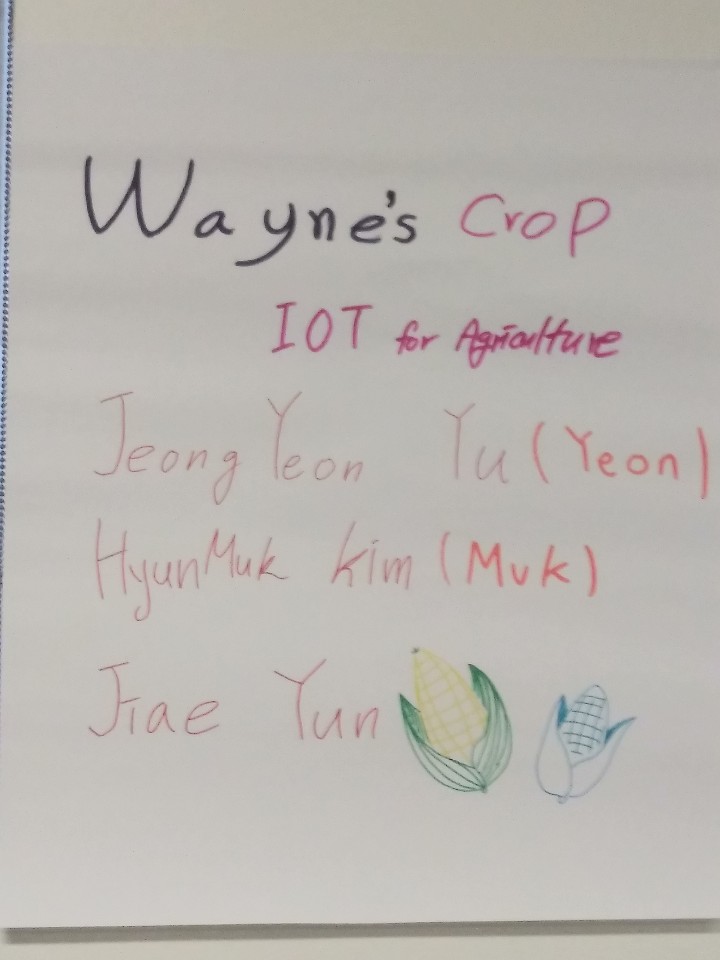 Wayne's Crop
IOT for Agriculture
JeongYeon Yu (Yeon)
HyunMuk Kim (Muk)
Jiae Yun